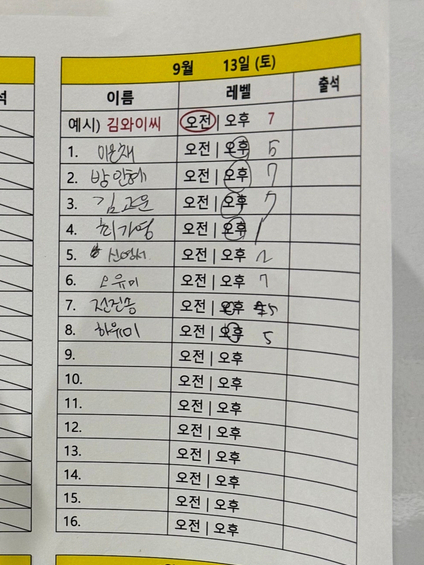 석
9월 13일 (토)
이름 레벨 출석
예시) 김와이씨 오전 | 오후 7
1. 이은채 오전 | 오후 5
2. 방인혜 오전 | 오후 7
3. 김고운 오전 | 오후 7
4. 최가영 오전 | 오후 1
5. 신영서 오전 | 오후 2
6. 오유미 오전 | 오후 7
7. 전진송 오전 | 오후 5
8. 하유미 오전 | 오후 5
9. 오전 | 오후
10. 오전 | 오후
11. 오전 | 오후
12. 오전 | 오후
13. 오전 | 오후
14. 오전 | 오후
15. 오전 | 오후
16. 오전 | 오후